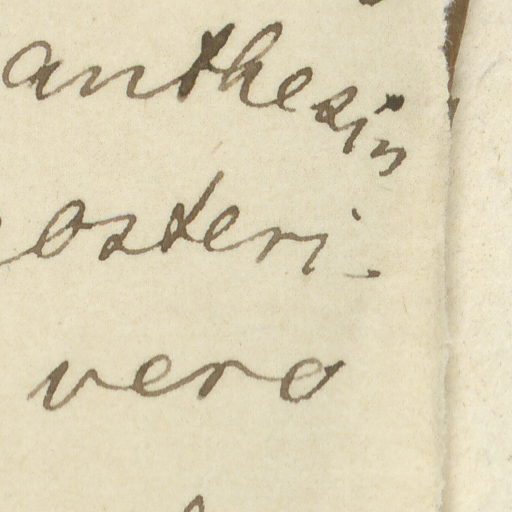 anthesin
osteri-
vero